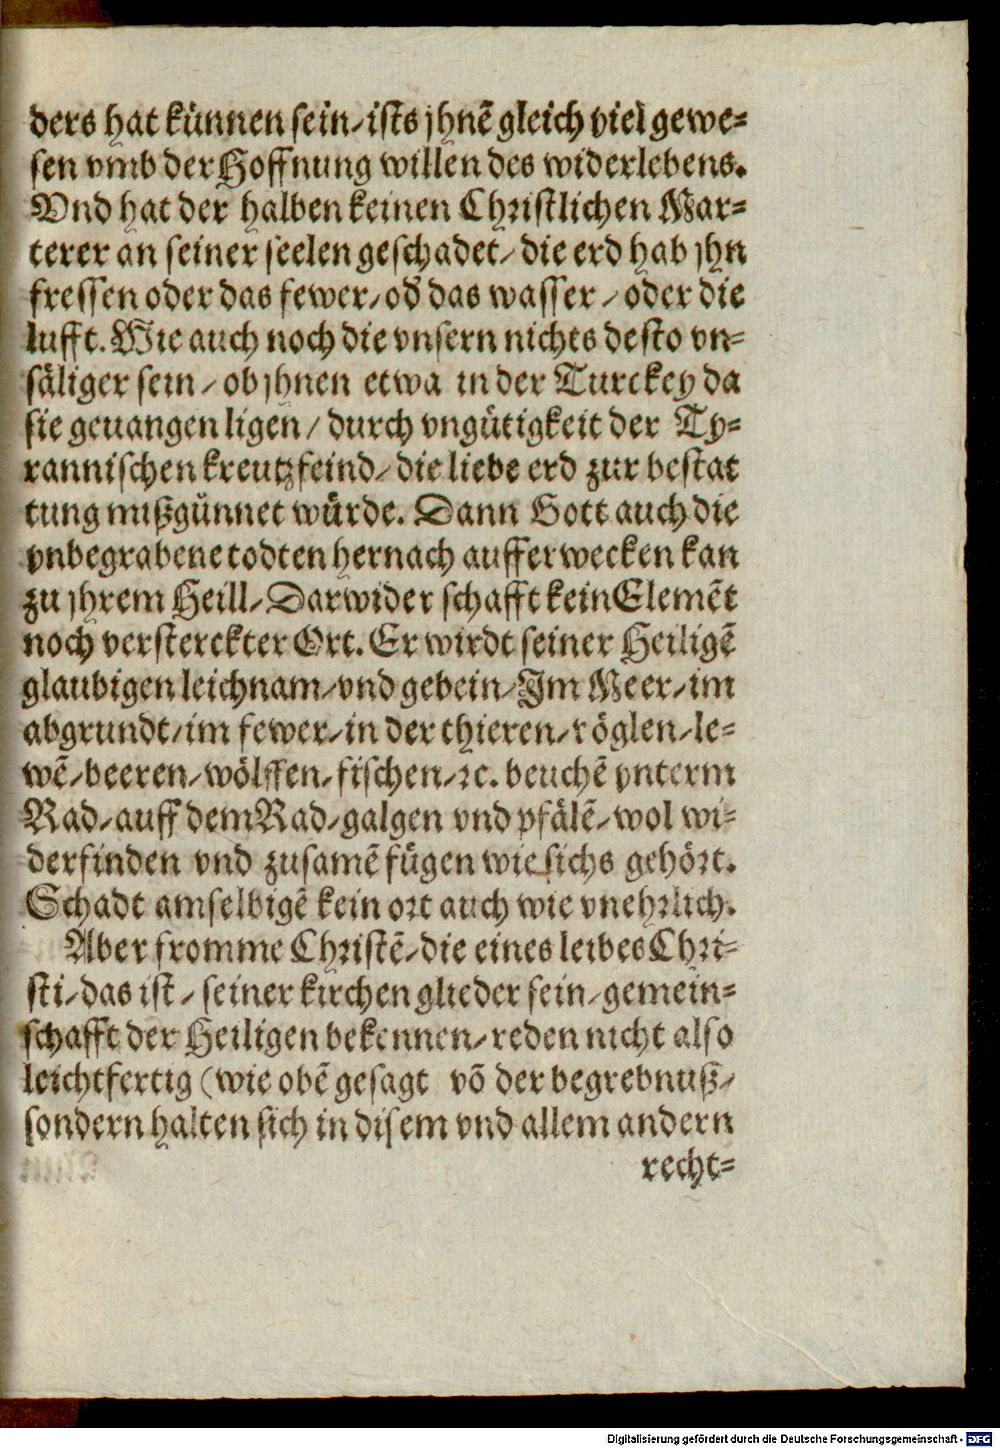 ders hat künnen sein/ists jhnẽ gleich viel gewe-
sen vmb der Hoffnung willen des widerlebens.
Vnd hat der halben keinen Christlichen Mar-
terer an seiner seelen geschadet/die erd hab jhn
fressen oder das fewer/oď das wasser/oder die
lufft. Wie auch noch die vnsern nichts desto vn-
säliger sein/ob jhnen etwa in der Turckey da
sie geuangen ligen/durch vngütigkeit der Ty-
rannischen kreutzfeind/die liebe erd zur bestat
tung mißgünnet würde. Dann Gott auch die
vnbegrabene todten hernach aufferwecken kan
zu jhrem Heill/Darwider schafft kein Elemẽt
noch versterckter Ort. Er wirdt seiner Heiligẽ
glaubigen leichnam/vnd gebein/Im Meer/im
abgrundt/im fewer/in der thieren/röglen/le-
wẽ/beeren/wölffen/fischen/ꝛc. beuchẽ vnterm
Rad/auff dem Rad/galgen vnd pfälẽ/wol wi-
derfinden vnd zusamẽ fügen wie sichs gehört.
Schadt amselbigẽ kein ort auch wie vnehrlich.
Aber fromme Christẽ/die eines leibes Chri-
sti/das ist/seiner kirchen glieder sein/gemein-
schafft der Heiligen bekennen/reden nicht also
leichtfertig (wie obẽ gesagt võ der begrebnuß/
sondern halten sich in disem vnd allem andern
recht-
Digitalisierung gefördert durch die Deutsche Forschungsgemeinschaft - DFG